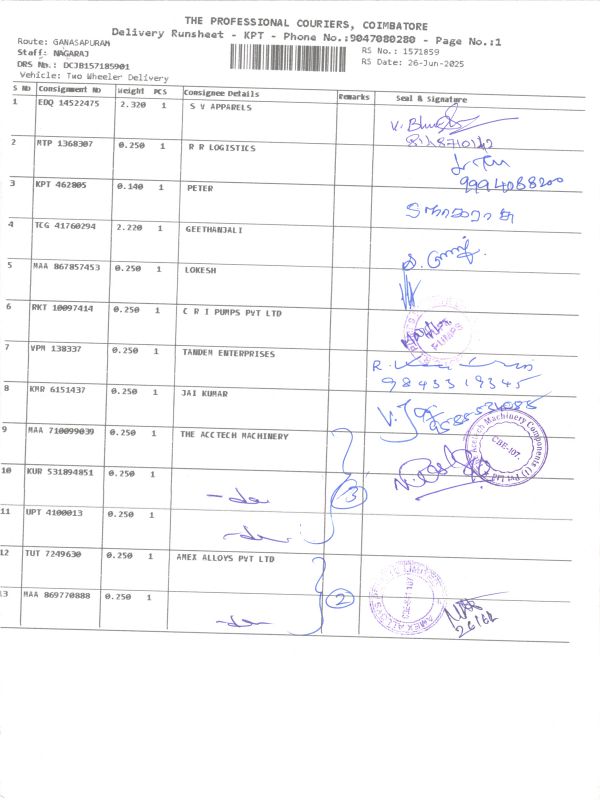 THE PROFESSIONAL COURIERS, COIMBATORE
Delivery Runsheet - KPT - Phone No.:9047080280 - Page No.:1
Route: GANASAPURAM
RS No.: 1571859
Staff: NAGARAJ
RS Date: 26-Jun-2025
DRS No.: DCJB157185901
Vehicle: Two Wheeler Delivery
S No Consignment No Weight PCS Consignee Details Remarks Seal & Signature
1 EDQ 14522475 2.320 1 S V APPARELS
2 MTP 1368307 0.250 1 R R LOGISTICS
9994088200
3 KPT 462805 0.140 1 PETER
4 TCG 41760294 2.220 1 GEETHANJALI
5 MAA 867857453 0.250 1 LOKESH
6 RKT 10097414 0.250 1 C R I PUMPS PVT LTD
PUMPS
7 VPM 138337 0.250 1 TANDEM ENTERPRISES
9843319345
8 KMR 6151437 0.250 1 JAI KUMAR
9 MAA 710099039 0.250 1 THE ACCTECH MACHINERY
Acctech Machinery Components (I) Pvt Ltd
CBE-107.
10 KUR 531894851 0.250 1 -do-
3
11 UPT 4100013 0.250 1 -do-
12 TUT 7249630 0.250 1 AMEX ALLOYS PVT LTD
2
AMEX ALLOYS
13 MAA 869770888 0.250 1 -do-